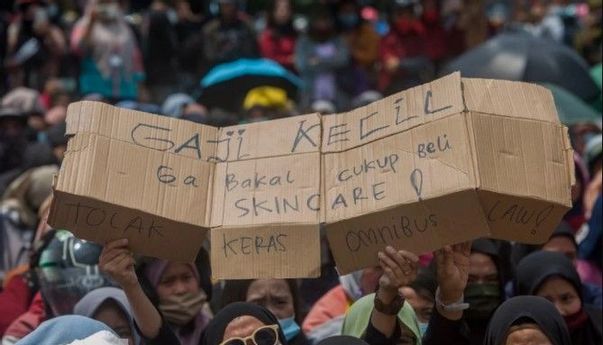 GAJI KECIL
Ga Bakal CUKUP BELI
SKINCARE!
TOLAK KERAS OMNIBUS LAW!